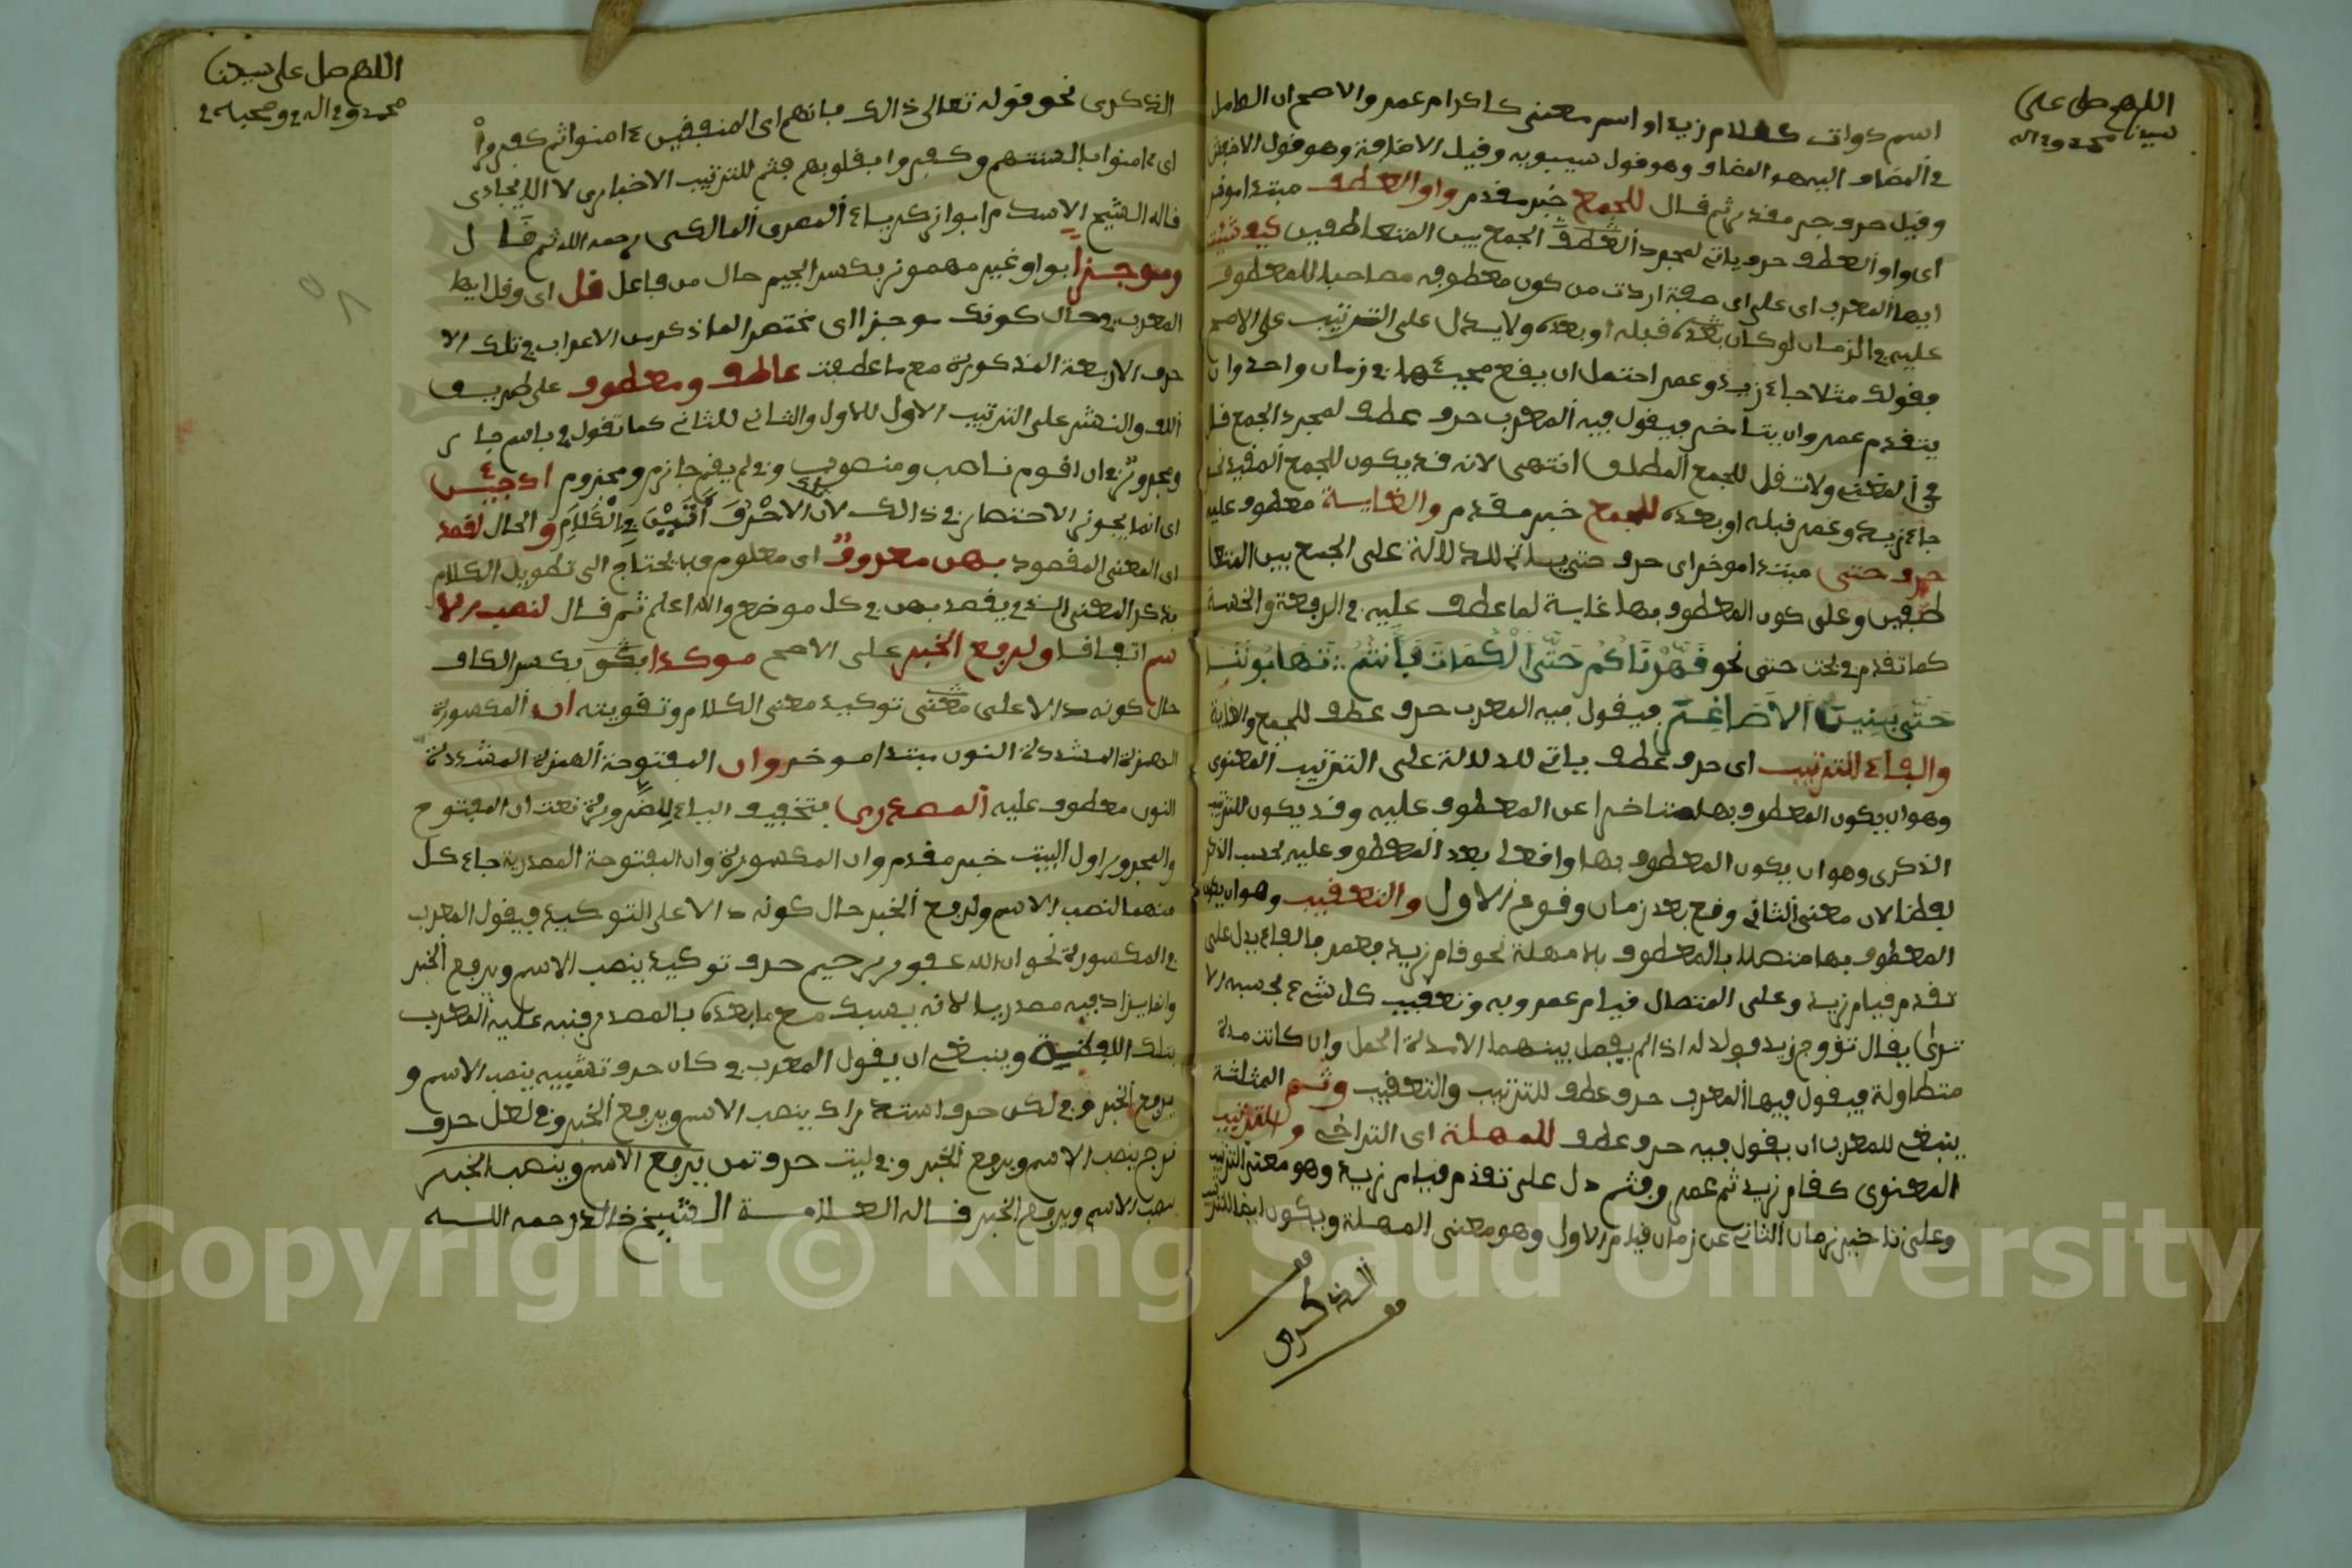 اللهم صل على
سيدنا محمد وءاله
اسم ذوات كغلام زيد او اسم معنى كاكرام عمر والاصح ان العامل
في المضاف اليه هو المضاف وهو قول سيبويه وقيل الاضافة وهو قول الاخفش
وقيل حرف جر مقدر ثم قال للجمع خبر مقدم واو العطف مبتدا موخر
اى واو العطف حرف ياتى لمجرد العطف الجمع بين المتعاطفين كيف شئت
ايها المعرب اى على اى صفة اردت من كون معطوفه مصاحبا للمعطوف
عليه في الزمان او كان بعده قبله او بعده ولا يدل على الترتيب على الاصح
فقولك مثلا جاء زيد وعمر احتمل ان يقع مجيئهما في زمان واحد وان
يتقدم عمر وان يتاخر فيقول فيه المعرب حرف عطف لمجرد الجمع قال
في المغنى ولا تقل للجمع المطلق انتهى لانه قد يكون للجمع المقيد نحو
جاء زيد وعمر قبله او بعده للجمع خبر مقدم والغاية معطوف عليه
حرف حتى مبتدا موخر اى حرف حتى ياتى للدلالة على الجمع بين المتعا
طفين وعلى كون المعطوف بها غاية لما عطف عليه في الرفعة والخسة
كما تقدم في بحث حتى نحو قَهَرْنَاكُم حَتَّى الْكُمَاتَ فَأَنتُمُ تَهَابُونَنَا
حَتَّى بَنِينَا الأَصَاغِرَ فيقول فيه المعرب حرف عطف للجمع والغاية
والفاء للترتيب اى حرف عطف ياتى للدلالة على الترتيب المعنوى
وهو ان يكون المعطوف بها متاخرا عن المعطوف عليه وقد يكون للترتيب
الذكرى وهو ان يكون المعطوف بها واقعا بعد المعطوف عليه بحسب الذكر
لفظا لان معنى الثانى وقع بعد زمان وقوع الاول والتعقيب وهو ان يكون
المعطوف بها متصلا بالمعطوف بلا مهلة نحو قام زيد فعمر فالفاء يدل على
تقدم قيام زيد وعلى اتصال قيام عمرو به وتعقيب كل شيء بحسبه الا
ترى يقال تزوج زيد فولد له اذا لم يفصل بينهما الا مدة الحمل وان كانت مدة
متطاولة فيقول فيها المعرب حرف عطف للترتيب والتعقيب وثم المثلثة
ينبغى للمعرب ان يقول فيه حرف عطف للمهلة اى التراخى والترتيب
المعنوى كقام زيد ثم عمر فثم دل على تقدم قيام زيد وهو معنى الترتيب
وعلى تاخير زمان الثانى عن زمان قيام الاول وهو معنى المهلة ويكون ايضا للترتيب
الذكرى
اللهم صل على سيدنا
محمد وءاله وصحبه
الذكرى نحو قوله تعالى ذالك بانهم اى المنفقين ءامنوا ثم كفروا
اى ءامنوا بالسنتهم وكفروا بقلوبهم فثم للترتيب الاخبارى لا الايجادى
قاله الشيخ الاسلام ابوا زكرياء المصرى المالكى رحمه الله ثم قال
وموجزا بواو غير مهموز بكسر الجيم حال من فاعل قل اى وقل ايها
المعرب في حال كونك موجزا اى مختصرا لما ذكر من الاعراب في تلك الا
حرف الاربعة المذكورة مع ما عطفت عاطف ومعطوف على طريق
اللف والنشر على الترتيب الاول للاول والثانى للثانى كما تقول في باسم جار
ومجرور وفى ان اقوم ناصب ومنصوب وفى لم يقم جازم ومجزوم اذ جيئن
اى انما يجوز الاختصار في ذالك لان الاحْرُفَ أَتَيْنَ فِى الْكَلَامِ و الحال لقصد
اى المعنى المقصود بهن معروف اى معلوم فلا يحتاج الى تطويل الكلام
بذكر المعنى الذى يقصد بهن في كل موضع والله اعلم ثم قال لنصب الا
سم اتفاقا ولرفع الخبر على الاصح موكدا بكو بكسر الكاف
حال كونه دالا على معنى توكيد معنى الكلام وتقويته ان المكسورة
الهمزة المشددة النون مبتدا موخر وان المفتوحة الهمزة المشددة
النون معطوف عليه المصدرى بتخفيف الياء للضرورة نعت ان المفتوح
والمجرور اول البيت خبر مقدم وان المكسورة وان المفتوحة المصدرية جاء كل
منهما لنصب الاسم ولرفع الخبر حال كونه دالا على التوكيد فيقول المعرب
في المكسورة نحو ان الله غفور رحيم حرف توكيد ينصب الاسم ويرفع الخبر
وانما يزاد فيه مصدريا لانه يسبك مع ما بعده بالمصدر فنبه عليه المعرب
بتلك اللفظية وينبغى ان يقول المعرب في كان حرف تشبيه ينصب الاسم و
يرفع الخبر وفى لكن حرف استدراك ينصب الاسم ويرفع الخبر وفى لعل حرف
ترج ينصب الاسم ويرفع الخبر وفى ليت حرف تمن يرفع الاسم وينصب الخبر
ينصب الاسم ويرفع الخبر قاله العلامة الشيخ خالد رحمه الله
Copyright © King Saud University